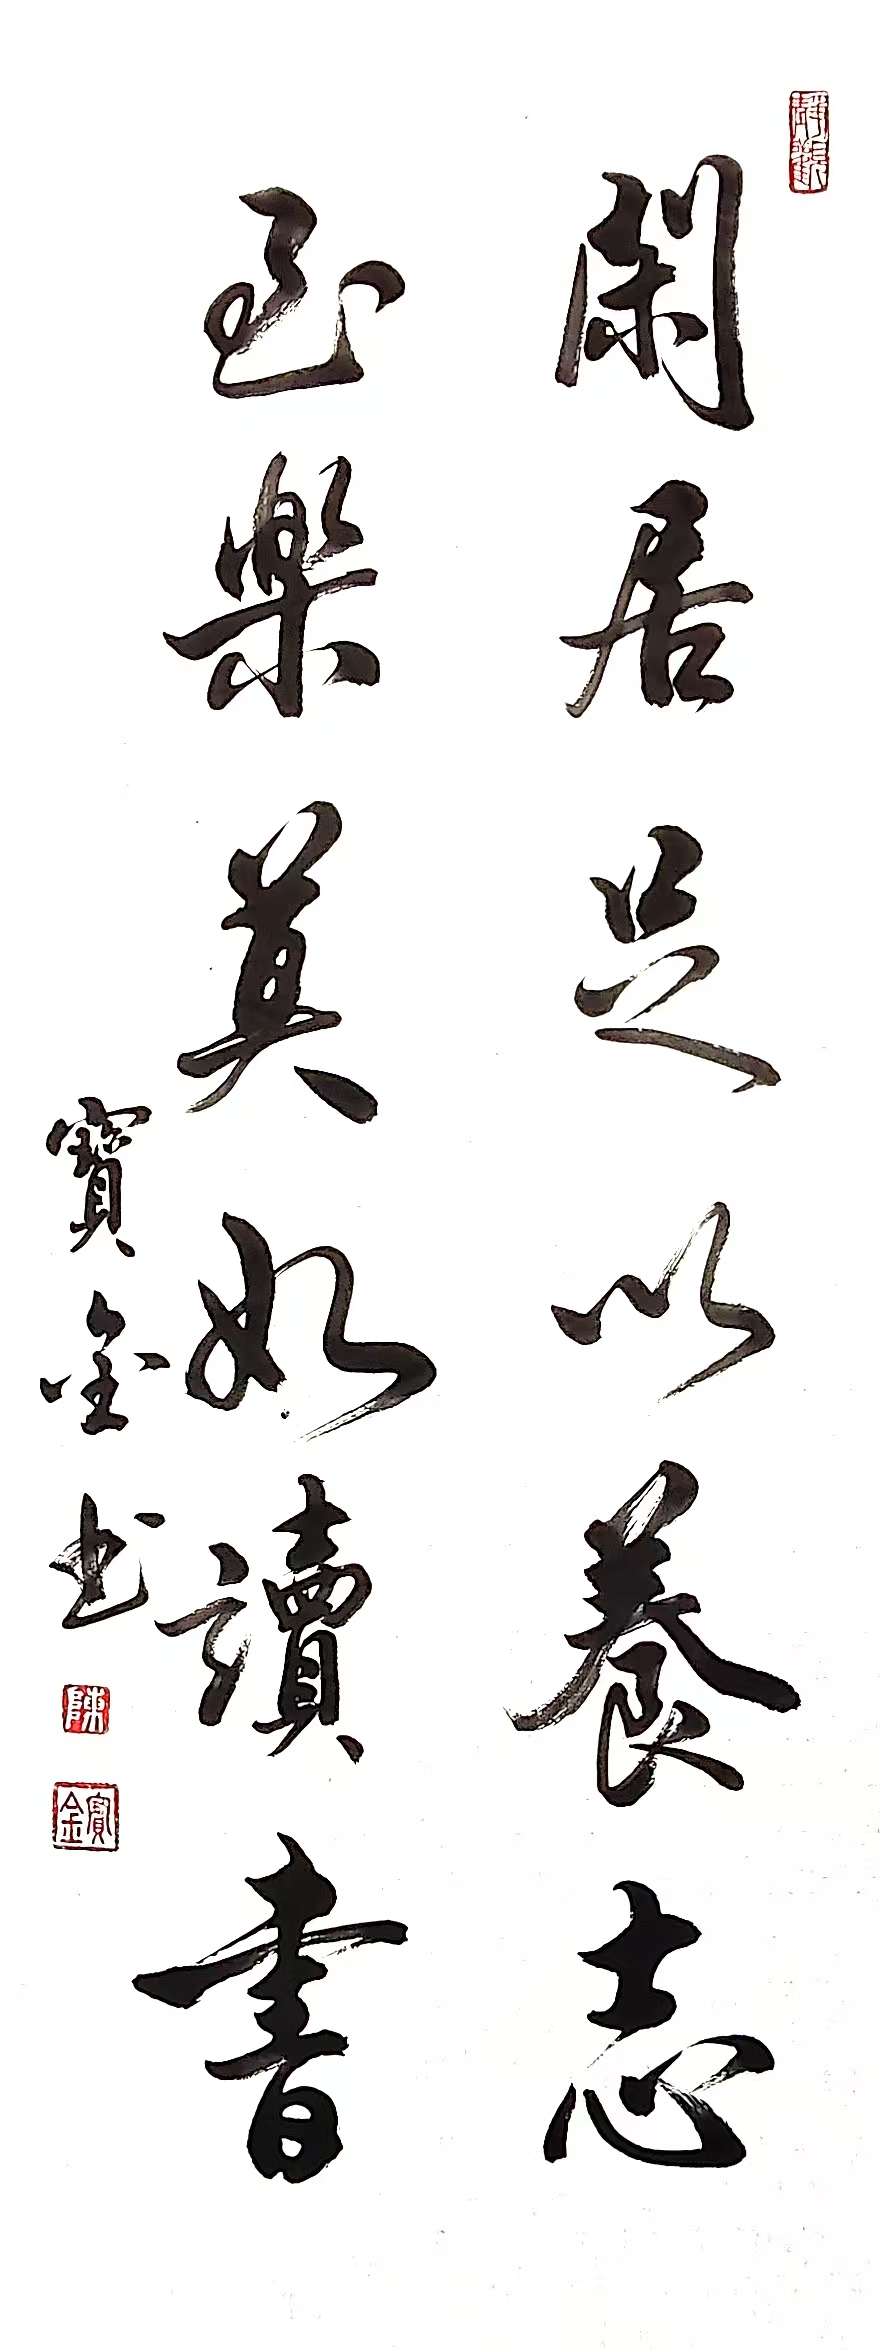 閑居足以養志
至樂莫如讀書
寶金书
靜觀
陳
寶金